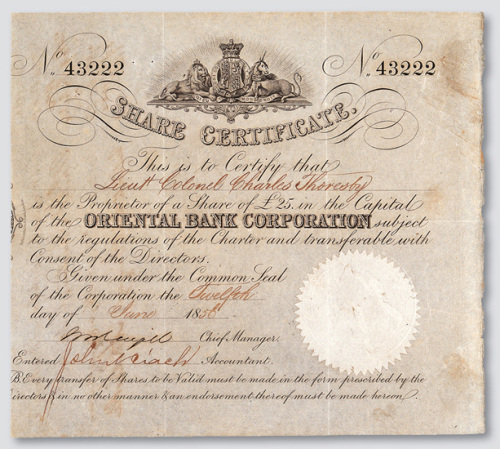 No. 43222 No. 43222
SHARE CERTIFICATE.
This is to Certify that
Lieutt Colonel Charles Thoresby
is the Proprietor of a Share of £25. in the Capital
of the ORIENTAL BANK CORPORATION subject
to the regulations of the Charter and transferable with
Consent of the Directors.
Given under the Common Seal
of the Corporation the Twelfth
day of June 1856
Chief Manager.
Entered Accountant.
B. Every transfer of Shares to be Valid must be made in the form prescribed by the
Directors & in no other manner & an endorsement thereof must be made hereon.